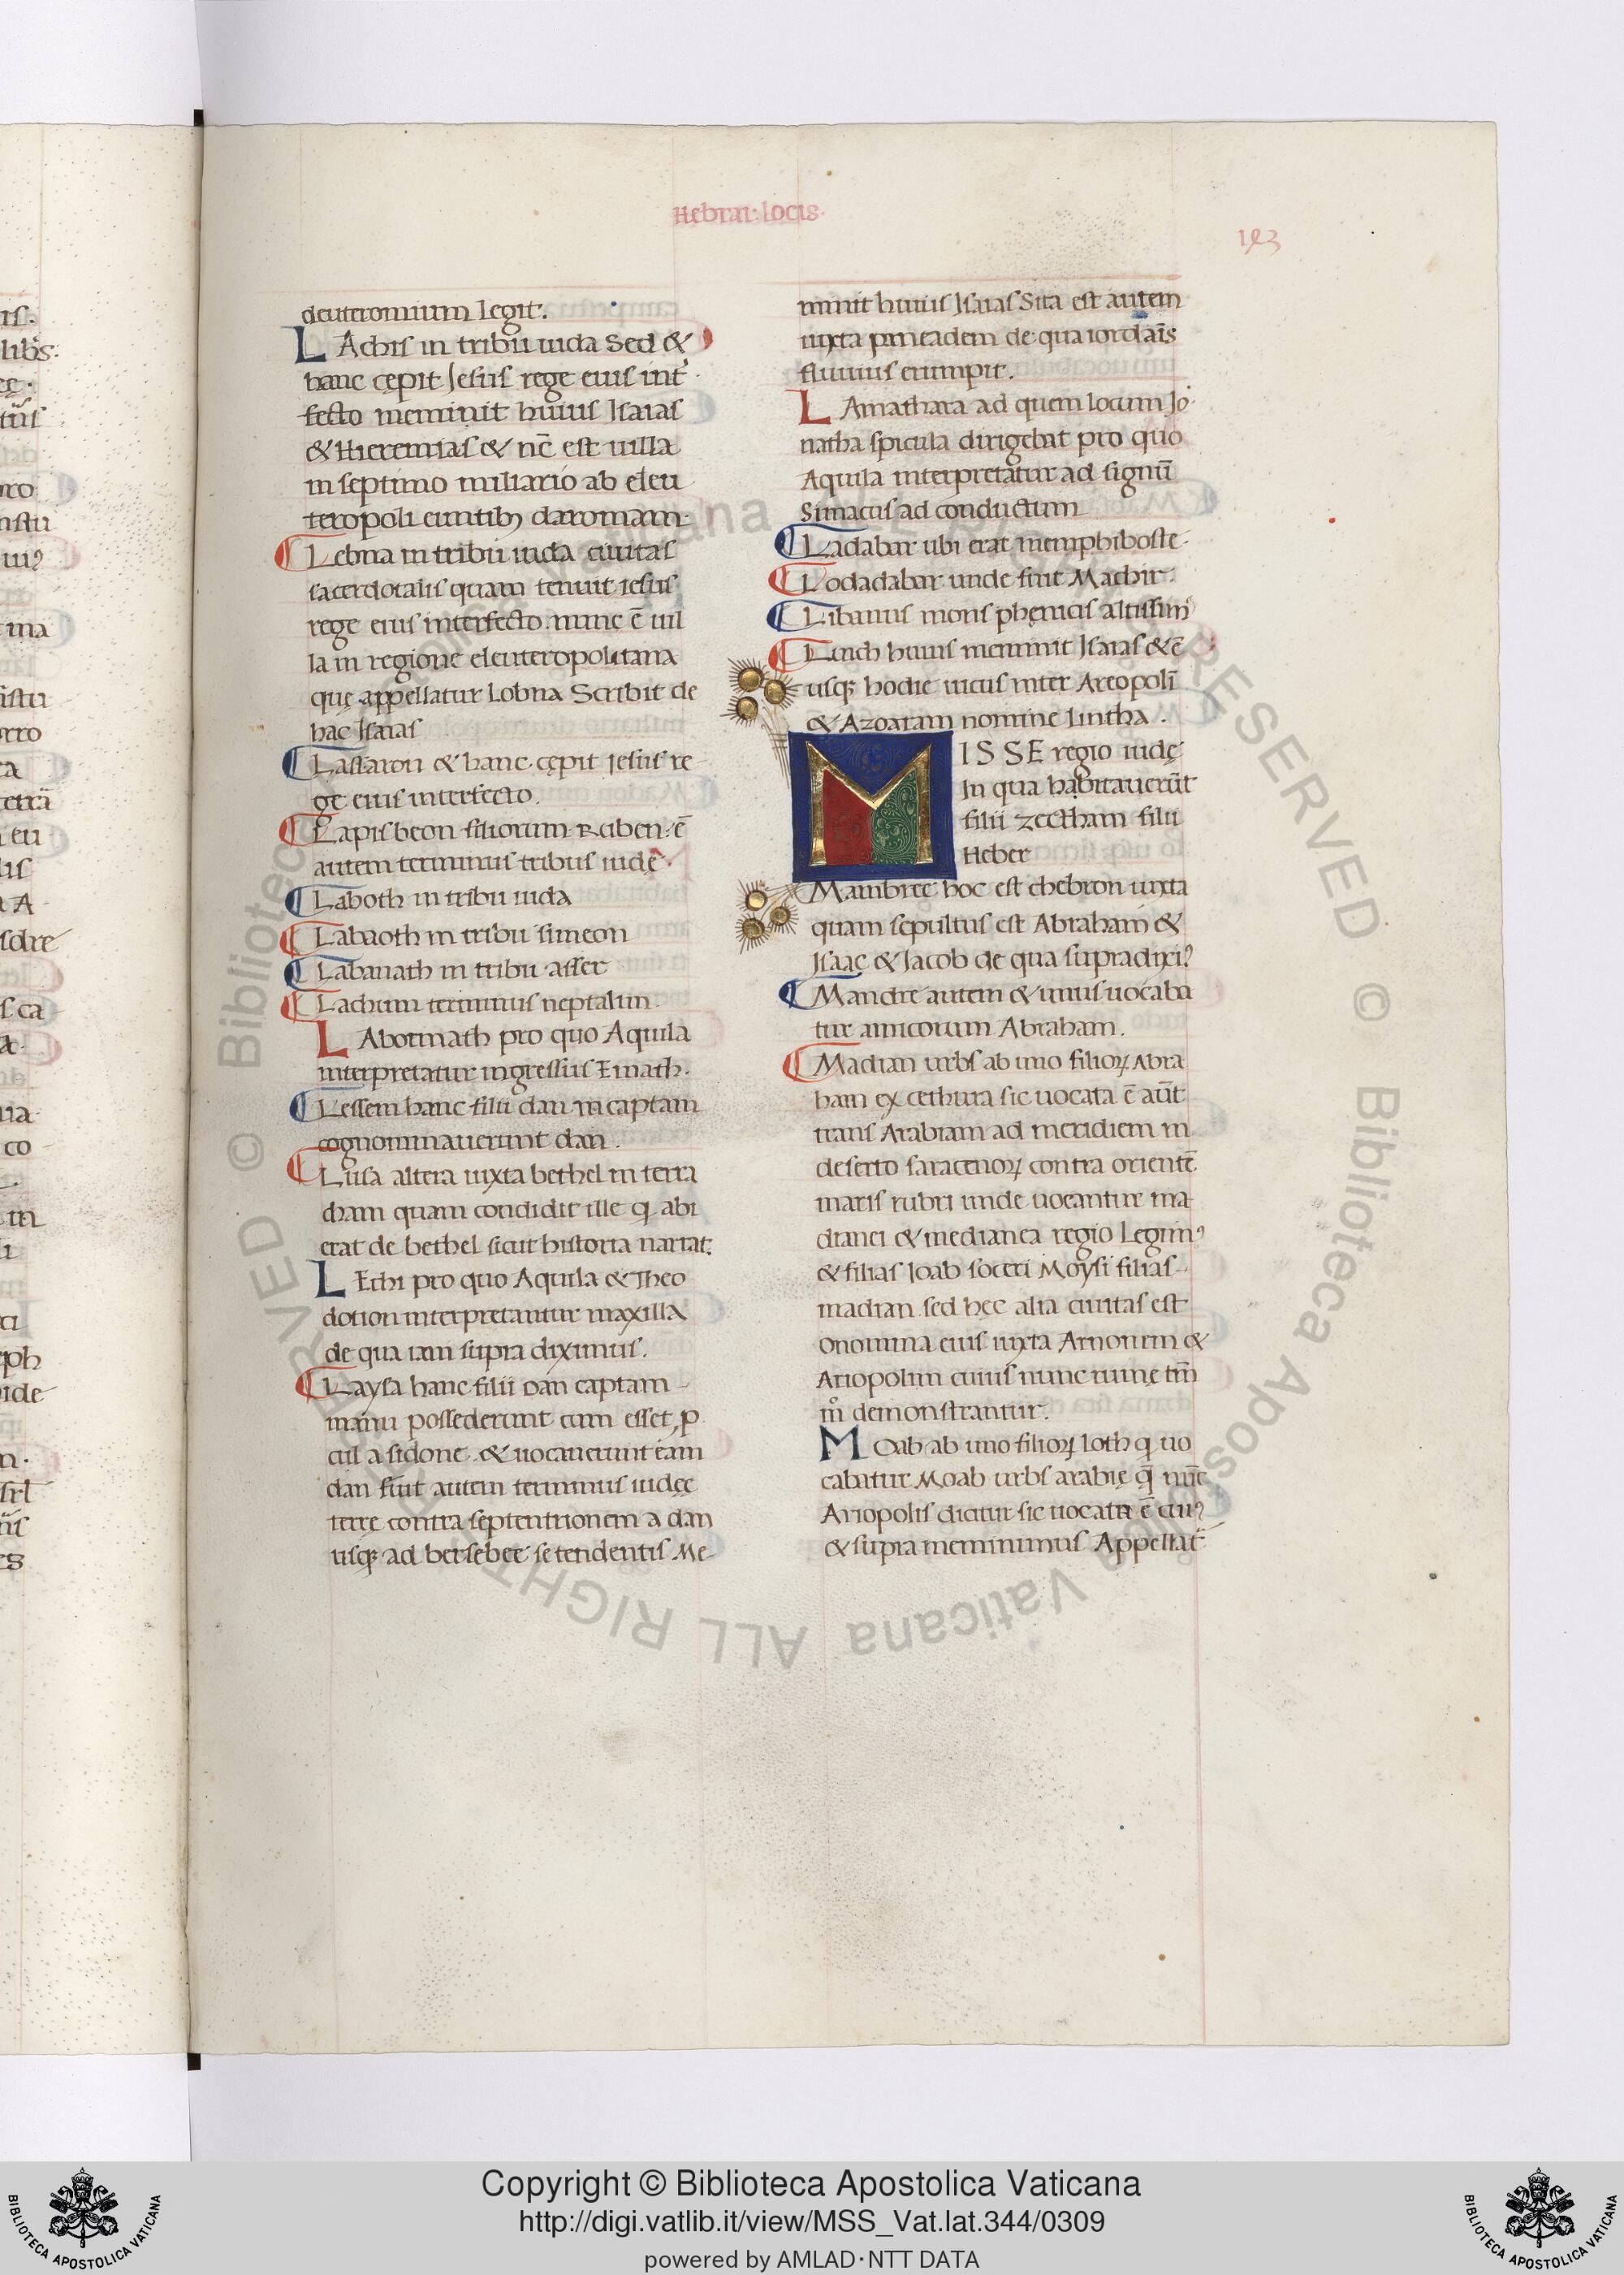 Hebrai: locis.
193
deuteromium legit.
LAchis in tribu iuda Sed &
hanc cępit Jesus rege eius int
fecto meminit huius Isaias
& Hieremias & nc̄ est uilla
in septimo miliario ab eleu
teropoli euntibꝫ daromam
Lebna in tribu iuda ciuitas
sacerdotalis quam tenuit iesus
rege eius interfecto. nunc ē uil
la in regione eleuteropolitana
quę appellatur Lobna Scribit de
hac Isaias
Lassaron & hanc cępit Jesus re
ge eius interfecto.
Lapis beon filiorum Ruben. ē
autem terminus tribus iudę.
Laboth in tribu iuda
Labaoth in tribu simeon
Labanath in tribu asser
Lachum terminus neptalim
LAboemath pro quo Aquila
interpretatur ingressus Emath.
Lessem hanc filii dan in captam
cognominauerunt dan.
Lusa altera iuxta bethel in terra
cham quam condidit ille q abi
erat de bethel sicut historia narrat.
LEchi pro quo Aquila & Theo
dotion interpretantur maxilla
de qua iam supra diximus.
Laysa hanc filii Dan captam
manu possederunt cum esset, p
cul a sidone. & uocauerunt eam
dan fuit autem terminus iudęę
terre contra septentrionem a dan
usqꝫ ad bersebee se tendentis Me
minit huius Isaias Sita est autem
iuxta pmeadem de qua iordāis
fluuius erumpit.
LAmathara ad quem locum Jo
natha spicula dirigebat pro quo
Aquila interpretatur ad signū
Simacus ad conductum
Ladabar ubi erat memphiboste
Lodadabar unde fuit Machir.
Libanus mons phęnicis altissim⁹
Luith huius meminit Isaias & ē
usqꝫ hodie uicus inter Areopolī
& Azoaram nomine lintha.
MISSE regio iudę
In qua habitauerūt
filii zectham filii
Heber
Mambree hoc est chebron iuxta
quam sepultus est Abraham &
Isaac & Jacob de qua supradixi⁹
Mandre autem & unus uocaba
tur amicorum Abraham.
Madian urbs ab uno filioꝝ Abra
ham ex cethura sic uocata ē aūt
trans Arabiam ad meridiem in
deserto saracenoꝝ contra orientē
maris rubri unde uocantur ma
dianei & medianea regio Legim⁹
& filias Ioab soceri Moysi filias
madian sed hęc alia ciuitas est
onomina eius iuxta Arnonem &
Ariopolim cuius nunc ruinę tm̄
m̊ demonstrantur.
MOab ab uno filioꝝ loth q uo
cabatur Moab urbs arabię q̄ nūc
Ariopolis dicitur sic uocata ē cui⁹
& supra meminimus Appellat
© Biblioteca Apostolica Vaticana ALL RIGHTS RESERVED
Copyright © Biblioteca Apostolica Vaticana
http://digi.vatlib.it/view/MSS_Vat.lat.344/0309
powered by AMLAD·NTT DATA
BIBLIOTECA APOSTOLICA VATICANA
BIBLIOTECA APOSTOLICA VATICANA